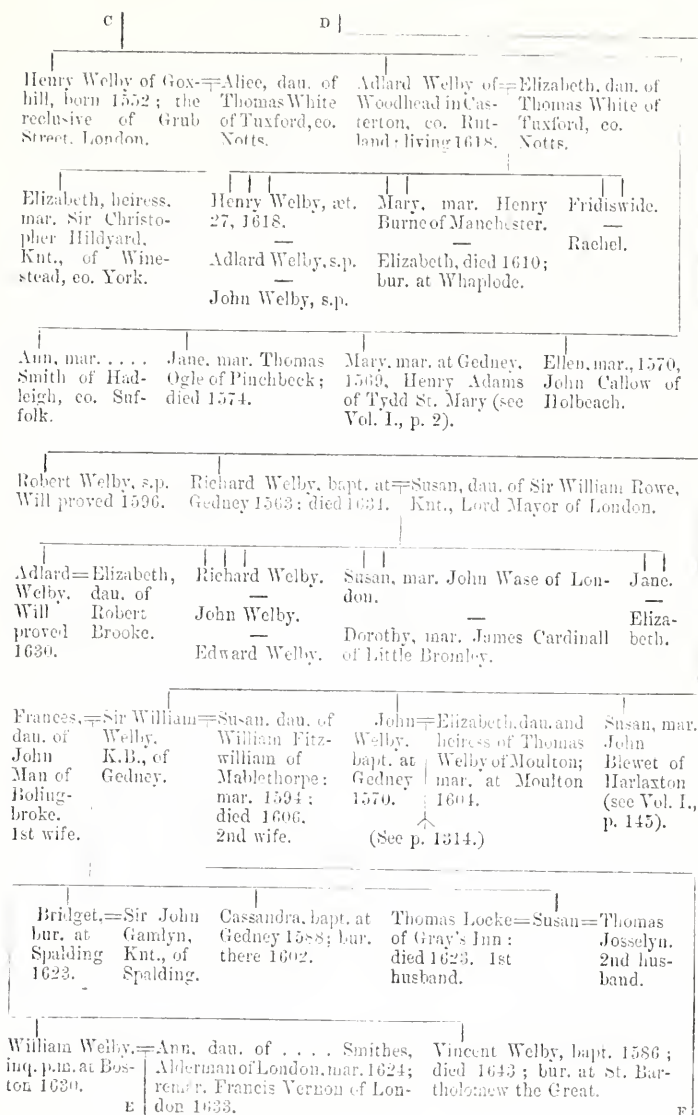 C
D
Henry Welby of Gox-
hill, born 1552 ; the
reclusive of Grub
Street, London.
Alice, dau. of
Thomas White
of Tuxford, co.
Notts.
Adlard Welby of
Woodhead in Cas-
terton, co. Rut-
land : living 1618.
Elizabeth, dau. of
Thomas White of
Tuxford, co.
Notts.
Elizabeth, heiress.
mar. Sir Christo-
pher Hildyard.
Knt., of Wine-
stead, co. York.
Henry Welby, æt.
27, 1618.
—
Adlard Welby, s.p.
—
John Welby, s.p.
Mary, mar. Henry
Burne of Manchester.
—
Elizabeth, died 1610;
bur. at Whaplode.
Fridiswide.
—
Rachel.
Ann, mar. . . . .
Smith of Had-
leigh, co. Suf-
folk.
Jane, mar. Thomas
Ogle of Pinchbeck ;
died 1574.
Mary, mar. at Gedney,
1569, Henry Adams
of Tydd St. Mary (see
Vol. I., p. 2).
Ellen, mar., 1570,
John Callow of
Holbeach.
Robert Welby, s.p.
Will proved 1596.
Richard Welby, bapt. at
Gedney 1563 : died 1631.
Susan, dau. of Sir William Rowe,
Knt., Lord Mayor of London.
Adlard
Welby.
Will
proved
1630.
Elizabeth,
dau. of
Robert
Brooke.
Richard Welby.
—
John Welby.
—
Edward Welby.
Susan, mar. John Wase of Lon-
don.
—
Dorothy, mar. James Cardinall
of Little Bromley.
Jane.
—
Eliza-
beth.
Frances,
dau. of
John
Man of
Boling-
broke.
1st wife.
Sir William
Welby,
K.B., of
Gedney.
Susan, dau. of
William Fitz-
william of
Mablethorpe :
mar. 1594 ;
died 1606.
2nd wife.
John
Welby,
bapt. at
Gedney
1570.
Elizabeth, dau. and
heiress of Thomas
Welby of Moulton;
mar. at Moulton
1604.
(See p. 1314.)
Susan, mar.
John
Blewet of
Harlaxton
(see Vol. I.,
p. 145).
Bridget,
bur. at
Spalding
1623.
Sir John
Gamlyn,
Knt., of
Spalding.
Cassandra, bapt. at
Gedney 1588 ; bur.
there 1602.
Thomas Locke
of Gray's Inn :
died 1623. 1st
husband.
Susan
Thomas
Josselyn.
2nd hus-
band.
William Welby,
inq. p.m. at Bos-
ton 1630.
Ann, dau. of . . . . Smithes,
Alderman of London, mar. 1624;
remar. Francis Vernon of Lon-
don 1633.
Vincent Welby, bapt. 1586 ;
died 1643 ; bur. at St. Bar-
tholomew the Great.
E
F